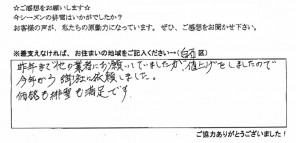 ☆ご感想をお願いします☆
今シーズンの排雪はいかがでしたか？
お客様の声が、私たちの原動力になっています。ぜひ、ご感想をお聞かせ下さい。
※差支えなければ、お住まいの地域をご記入ください→（白石区）
昨年まで他の業者にお願いしていましたが値上げをしましたので
今年から御社に依頼しました。
価格も排雪も満足です。
ご協力ありがとうございました！